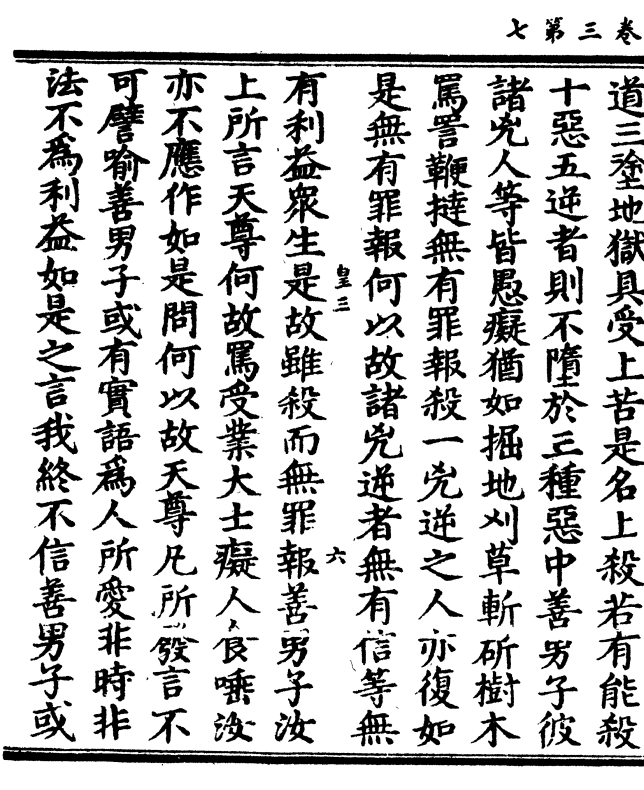 卷三第七
道三塗地獄具受上苦是名上殺若有能殺
十惡五逆者則不墮於三種惡中善男子彼
諸兇人等皆愚癡猶如掘地刈草斬斫樹木
罵詈鞭撻無有罪報殺一兇逆之人亦復如
是無有罪報何以故諸兇逆者無有信等無
皇三
六
有利益衆生是故雖殺而無罪報善男子汝
上所言天尊何故罵受業大士癡人食唾汝
亦不應作如是問何以故天尊凡所發言不
可譬喻善男子或有實語爲人所愛非時非
法不爲利益如是之言我終不信善男子或